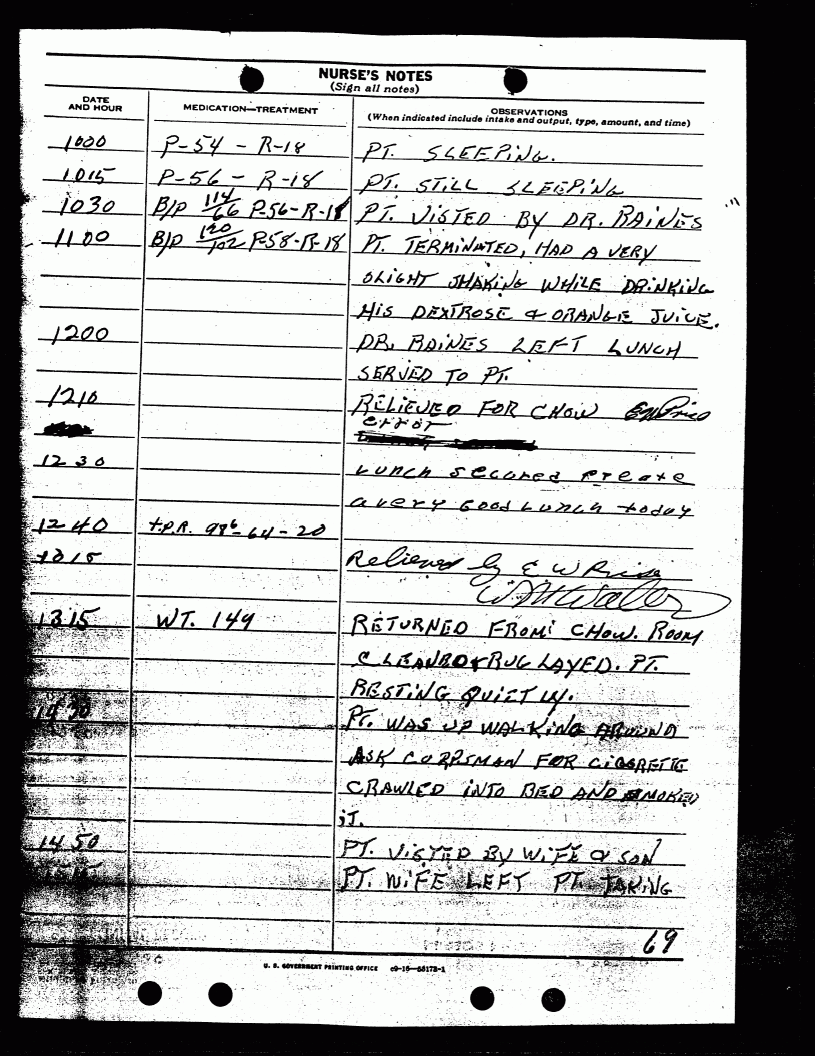 NURSE'S NOTES
(Sign all notes)
DATE AND HOUR MEDICATION—TREATMENT OBSERVATIONS
(When indicated include intake and output, type, amount, and time)
1000 P-54 - R-18 PT. SLEEPING.
1015 P-56 - R-18 PT. STILL SLEEPING
1030 B/P 114/66 P-56-R-18 PT. VISTED BY DR. RAINES
1100 B/P 120/102 P-58-R-18 PT. TERMINATED, HAD A VERY
SLIGHT SHAKING WHILE DRINKING
HIS DEXTROSE & ORANGE JUICE.
1200 DR. RAINES LEFT LUNCH
SERVED TO PT.
1210 RELIEVED FOR CHOW EW Price
error
1230 Lunch secured
a very Good Lunch today
1240 T.P.R. 98⁶-64-20
1315 Relieved by E W Price
1315 WT. 149 RETURNED FROM CHOW. ROOM
CLEANED & RUG LAYED. PT.
RESTING QUIETLY.
1430 PT. WAS UP WALKING AROUND
ASK CORPSMAN FOR CIGARETTE
CRAWLED INTO BED AND SMOKED
IT.
1450 PT. VISTED BY WIFE & SON
PT. WIFE LEFT PT. TAKING
69
U. S. GOVERNMENT PRINTING OFFICE c9-16—55173-1